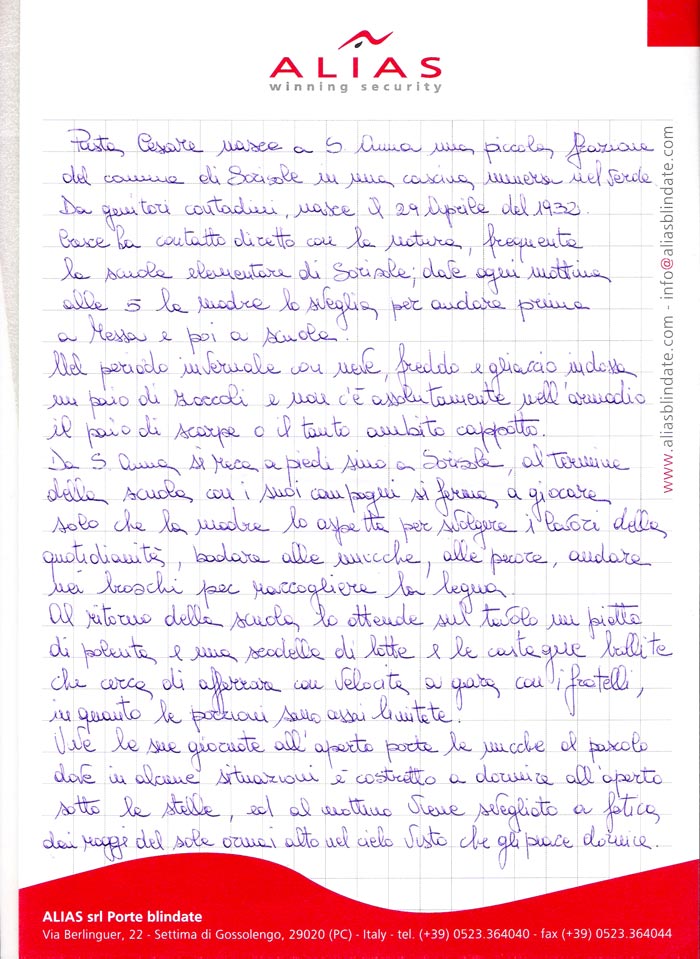 ALIAS
winning security
Pasta Cesare nasce a S Anna una piccola frazione
del comune di Sorisole in una cascina immersa nel verde
Da genitori contadini, nasce il 29 Aprile del 1932.
Cresce ha contatto diretto con la natura, frequenta
la scuola elementare di Sorisole; dove ogni mattina
alle 5 la madre lo sveglia per andare prima
a Messa e poi a scuola.
Nel periodo invernale con neve, freddo e ghiaccio indossa
un paio di zoccoli e non c'è assolutamente nell'armadio
il paio di scarpe o il tanto ambito cappotto.
Da S Anna si reca a piedi sino a Sorisole, al termine
della scuola con i suoi compagni si ferma a giocare
solo che la madre lo aspetta per svolgere i lavori della
quotidianità, badare alle mucche, alle pecore, andare
nei boschi per raccogliere la legna.
Al ritorno della scuola lo attende sul tavolo un piatto
di polenta e una scodella di latte e le castagne bollite
che cerca di afferrare con velocità a gara con i fratelli,
in quanto le porzioni sono assai limitate.
Vive le sue giornate all'aperto porta le mucche al pascolo
dove in alcune situazioni è costretto a dormire all'aperto
sotto le stelle, ed al mattino viene svegliato a fatica
dai raggi del sole ormai alto nel cielo visto che gli piace dormire.
www.aliasblindate.com - info@aliasblindate.com
ALIAS srl Porte blindate
Via Berlinguer, 22 - Settima di Gossolengo, 29020 (PC) - Italy - tel. (+39) 0523.364040 - fax (+39) 0523.364044